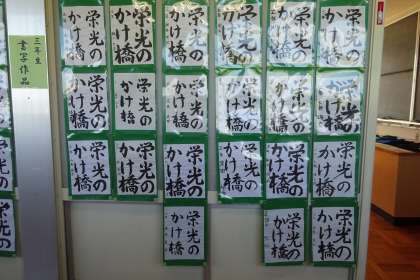 三年生
書写作品
栄光の
かけ橋
栄光の
かけ橋
栄光の
かけ橋
栄光の
かけ橋
栄光の
かけ橋
栄光の
かけ橋
栄光の
かけ橋
栄光の
かけ橋
栄光の
かけ橋
栄光の
かけ橋
栄光の
かけ橋
栄光の
かけ橋
栄光の
かけ橋
栄光の
かけ橋
栄光の
かけ橋
栄光の
かけ橋
栄光の
かけ橋
栄光の
かけ橋
栄光の
かけ橋
栄光の
かけ橋
栄光の
かけ橋